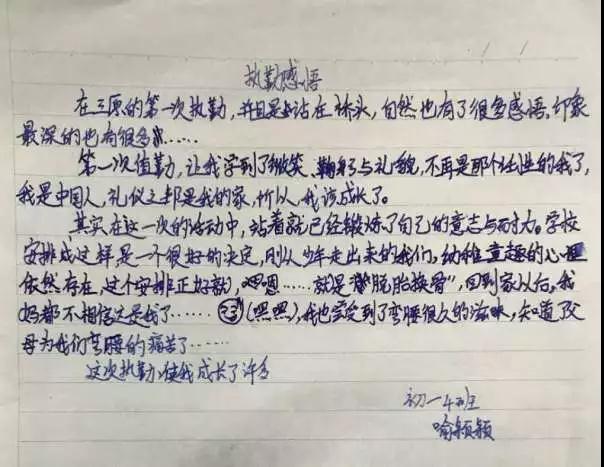 执勤感悟
在三原的第一次执勤,并且是站在桥头,自然也有了很多感悟,印象
最深的也有很多……
第一次值勤,让我学到了微笑、鞠躬与礼貌,不再是那个任性的我了,
我是中国人,礼仪之邦是我的家,所以,我该成长了。
其实在这一次的活动中,站着就已经锻炼了自己的意志与耐力。学校
安排成这样,是一个很好的决定,刚从少年走出来的我们,幼稚童趣的心理
依然存在,这个安排正好就,嗯嗯……就是“脱胎换骨”,回到家以后,我
妈都不相信这是我了……(嘿嘿),我也感受到了弯腰很久的滋味,知道了父
母为我们弯腰的痛苦了……
这次执勤使我成长了许多
初一4班
喻颖颖